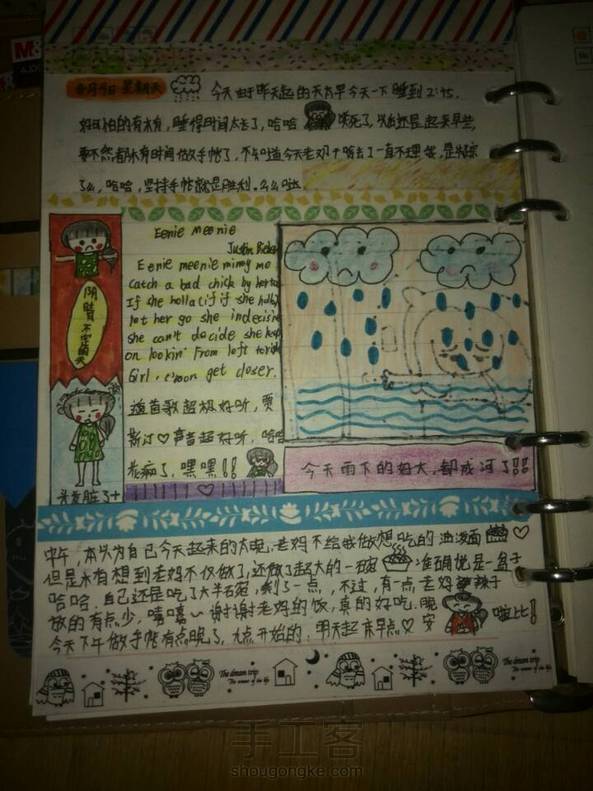 星期天
今天由于昨天起的太早今天一下睡到2:45.
好可怕的有木有,睡得时间太长了,哈哈 笑死了,以后还是起来早些,
要不然都木有时间做手帐了.不知道今天老妈干啥去了一直不理我,是
了么,哈哈,坚持手帐就是胜利.么么哒.
Eenie Meenie
Justin Bieber
Eenie meenie miney mo
Catch a bad chick by her toe
If she holla if if she holla
let her go she indecisive
she can't decide she keep
on lookin' From left to right
Girl, c'mon get closer.
这首歌超极好听,贾
斯汀♡声音超好听,哈哈
花痴了,嘿嘿!!
阴晴不定的天
头发脏了+
今天雨下的好大,都成河了!!
中午,本以为自己今天起来的太晚,老妈不给我做想吃的油泼面 ♡
但是木有想到老妈不仅做了,还做了超大的一碗 准确说是一盆子
哈哈.自己还是吃了大半碗,剩了一点,不过,有一点,老妈 辣子
放的有点少,嘻嘻~谢谢老妈的饭,真的好吃.晚
今天下午做手帐有点晚了,九点开始的.明天起床早点♡安 啦比!
The dream trip
The dream trip
手工客
shougongke.com